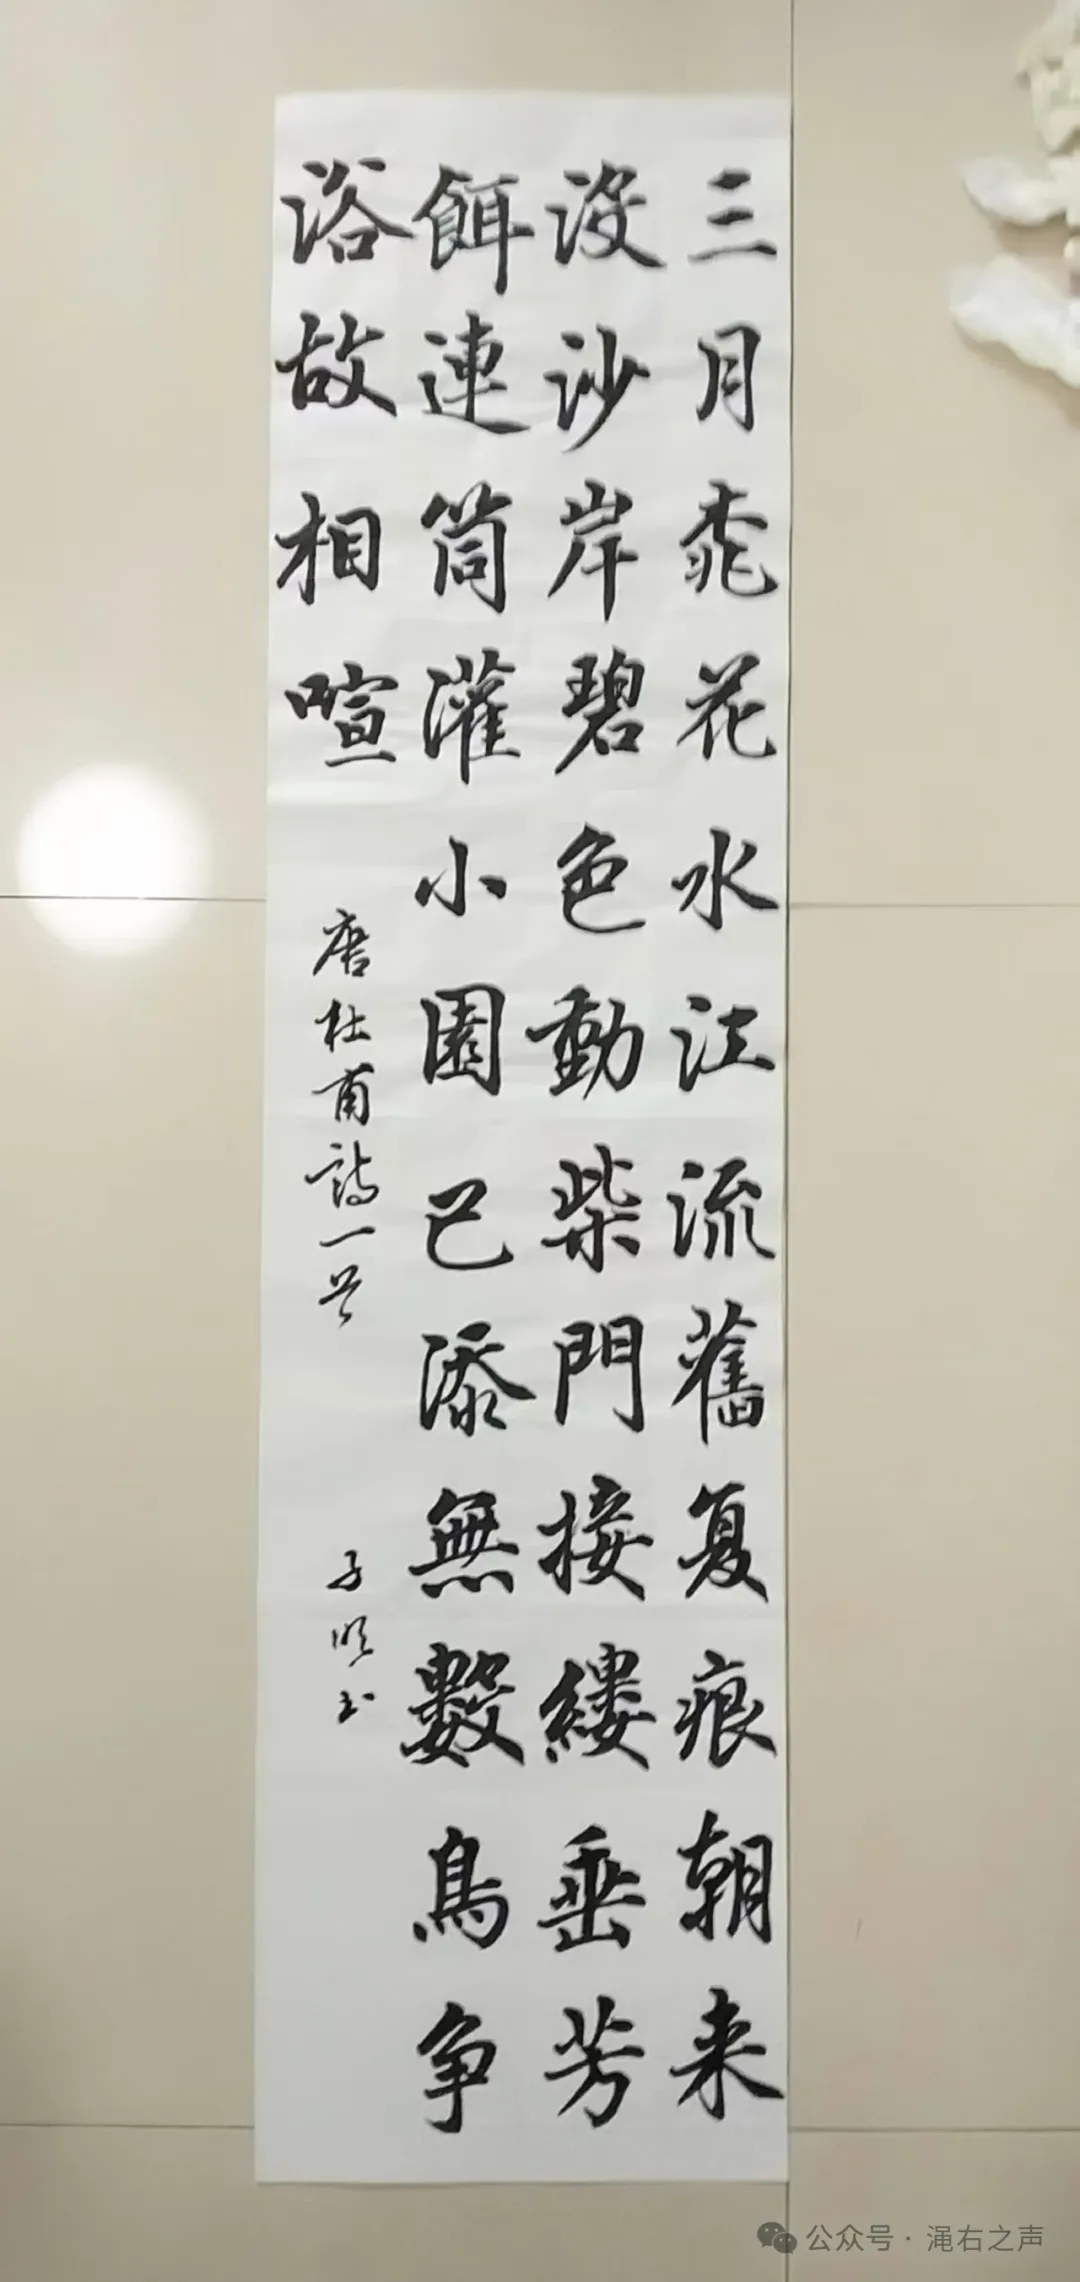 三月桃花水江流舊复痕朝来
没沙岸碧色動柴門接縷垂芳
餌連筒灌小園已添無數鳥争
浴故相喧
唐杜甫詩一首
子书
公众号·渑右之声